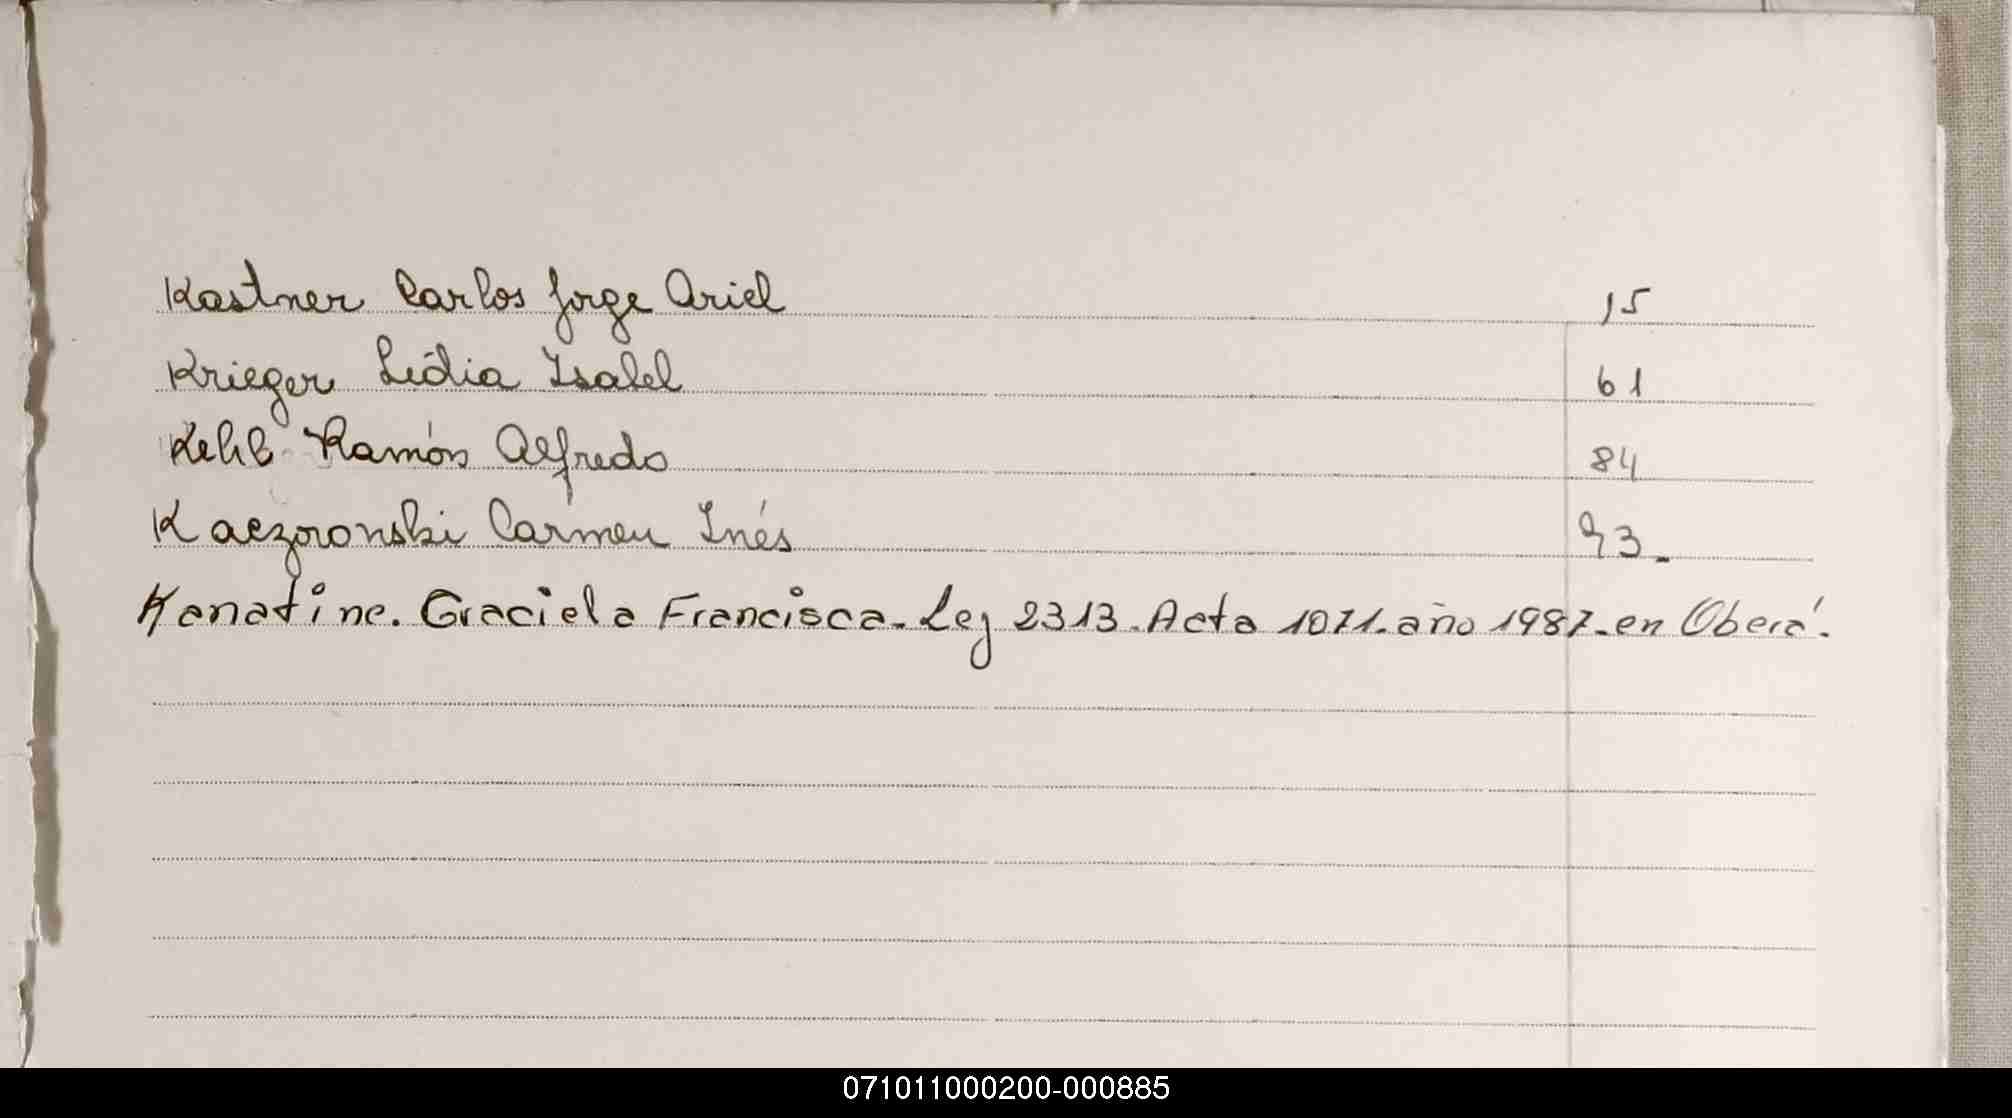 Kastner Carlos Jorge Ariel 15
Krieger Lidia Isabel 61
Kelib Ramón Alfredo 84
Kaczoronski Carmen Inés 93.
Kanatine. Graciela Francisca. Ley 2313. Acta 1071. año 1987. en Oberá.
071011000200-000885